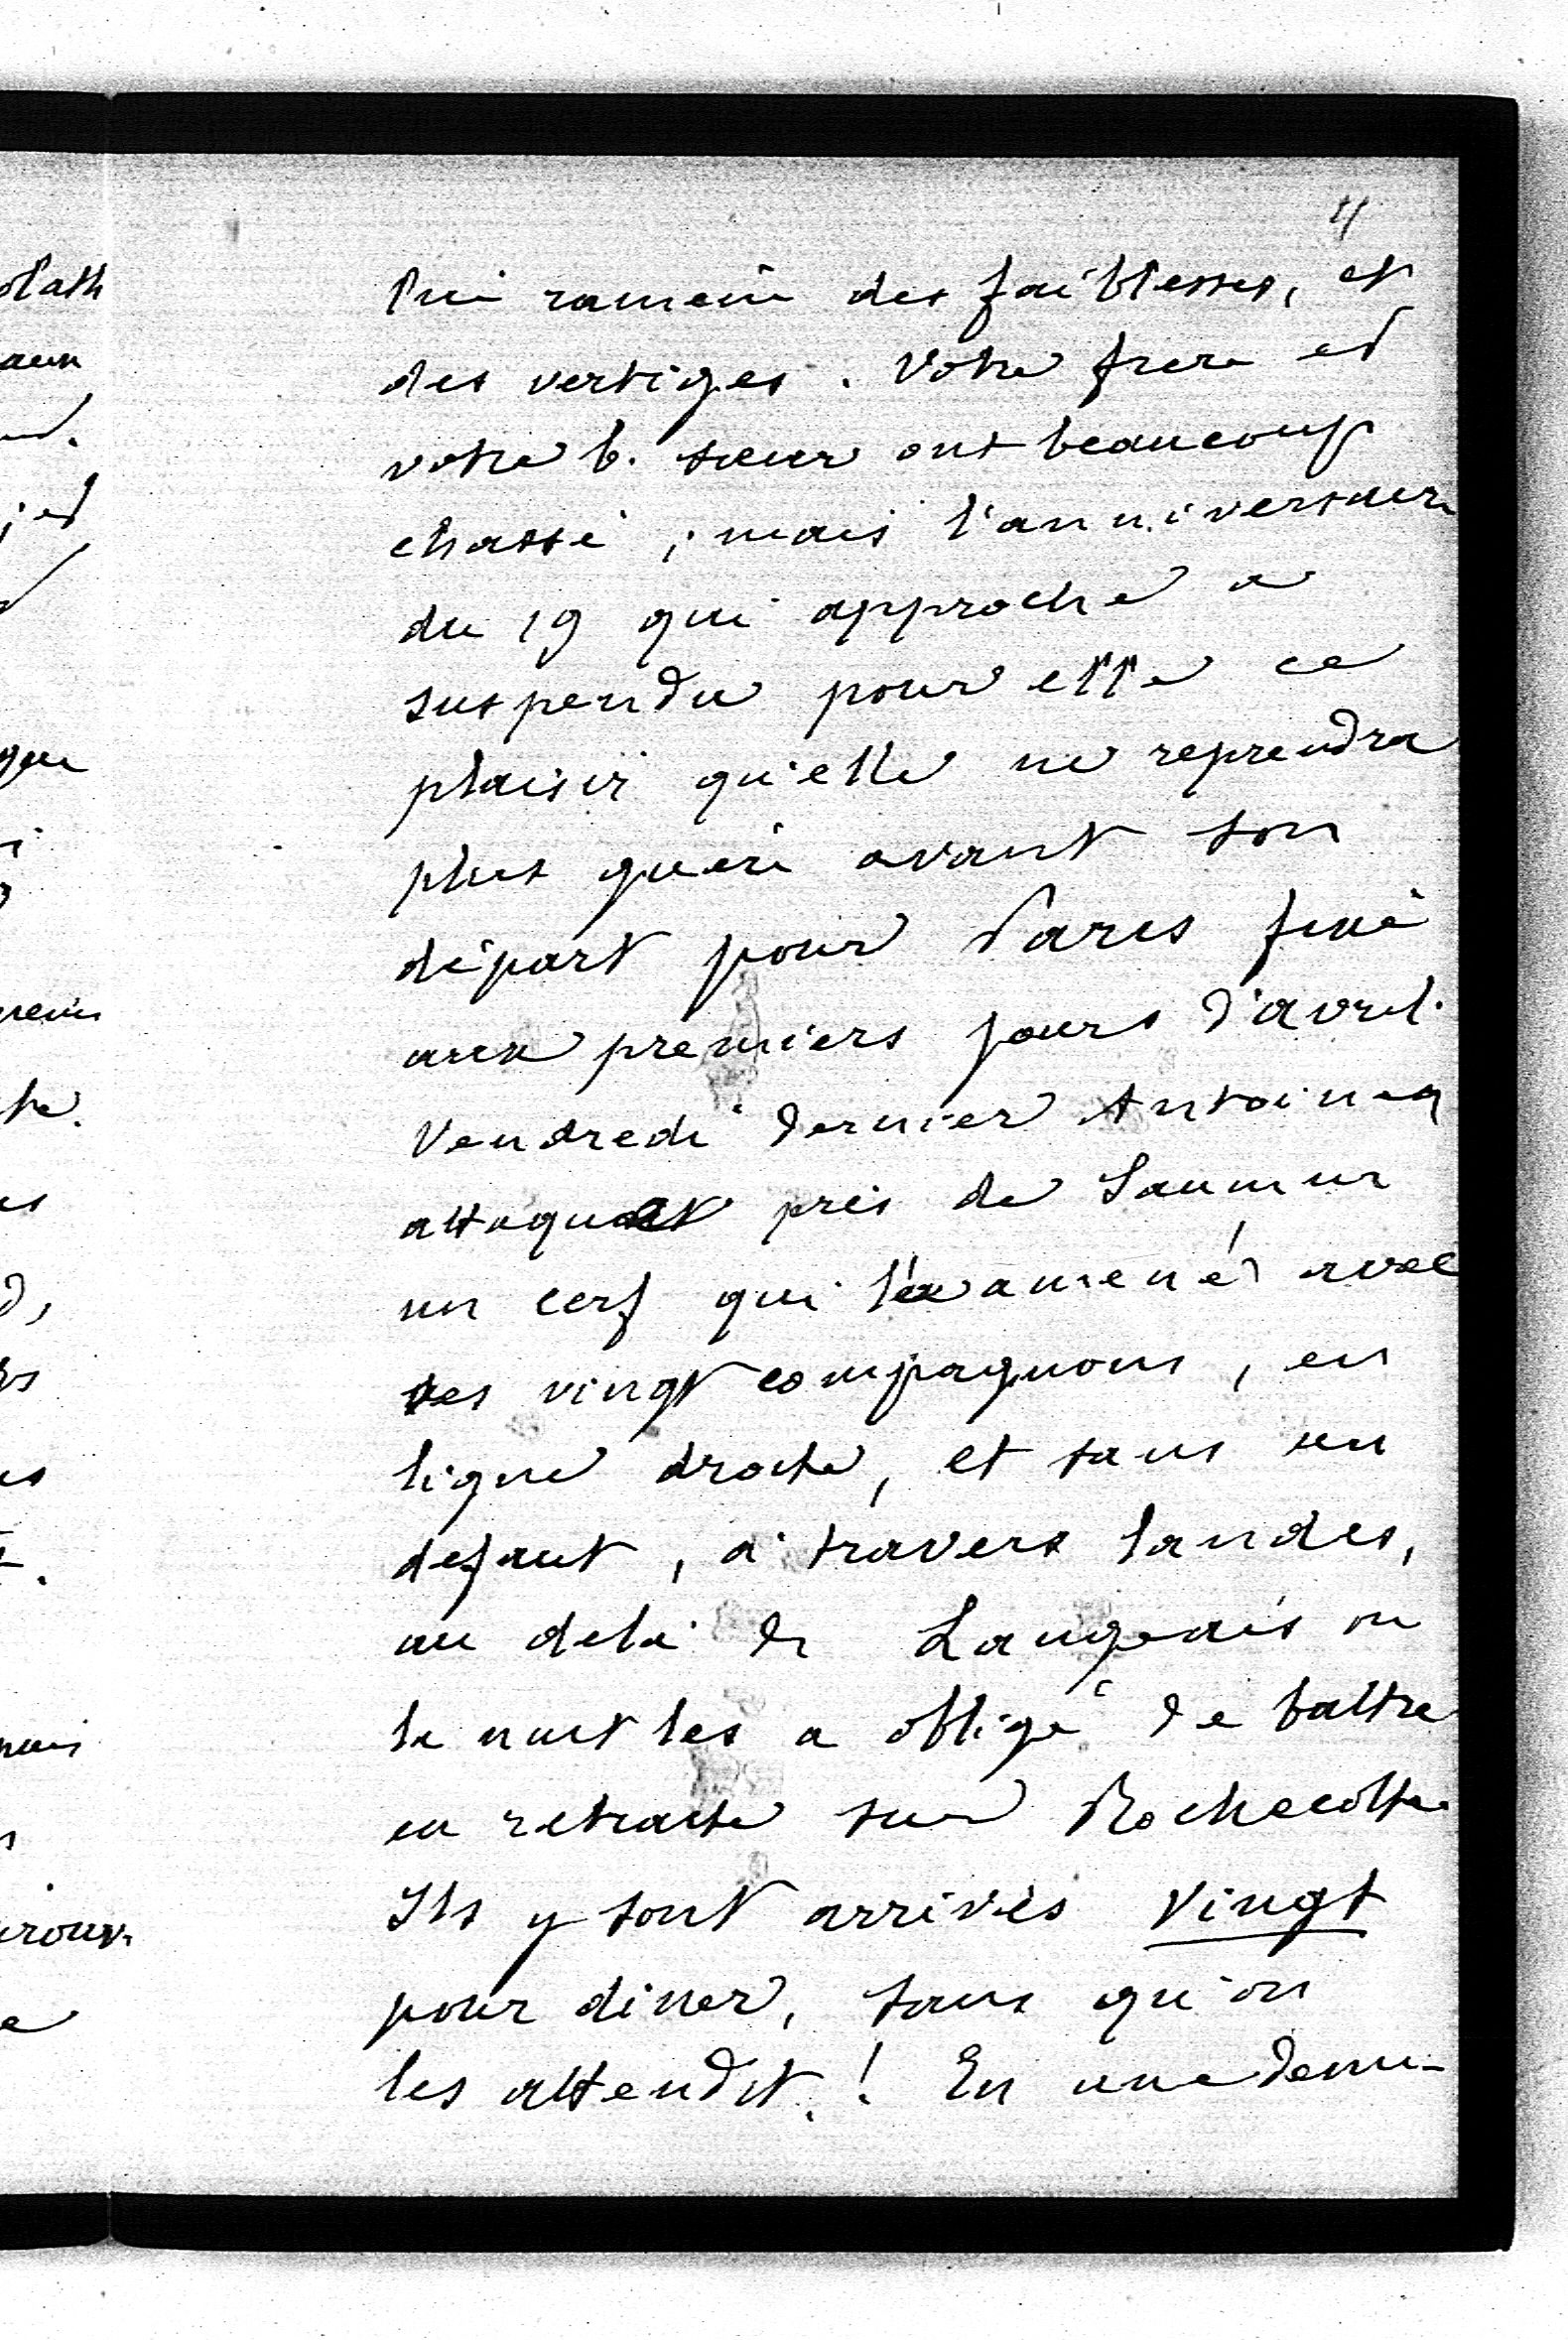 4
lui ramène des faiblesses, et
des vertiges. Votre frere et
votre b. sœur ont beaucoup
chassé ; mais l'anniversaire
du 19 qui approche a
suspendu pour elle ce
plaisir qu'elle ne reprendra
plus guère avant son
départ pour Paris fixé
aux premiers jours d'avril.
Vendredi dernier Antoine a
attaqué près de Saumur
un cerf qui l'a amené avec
ses vingt compagnons, en
ligne droite, et sans un
defaut, à travers landes,
au delà de Langeais ou
la nuit les a obligé de battre
en retraite sur Rochecotte
Ils y sont arrivés vingt
pour diner, sans qu'on
les attendit. ! En une demi-